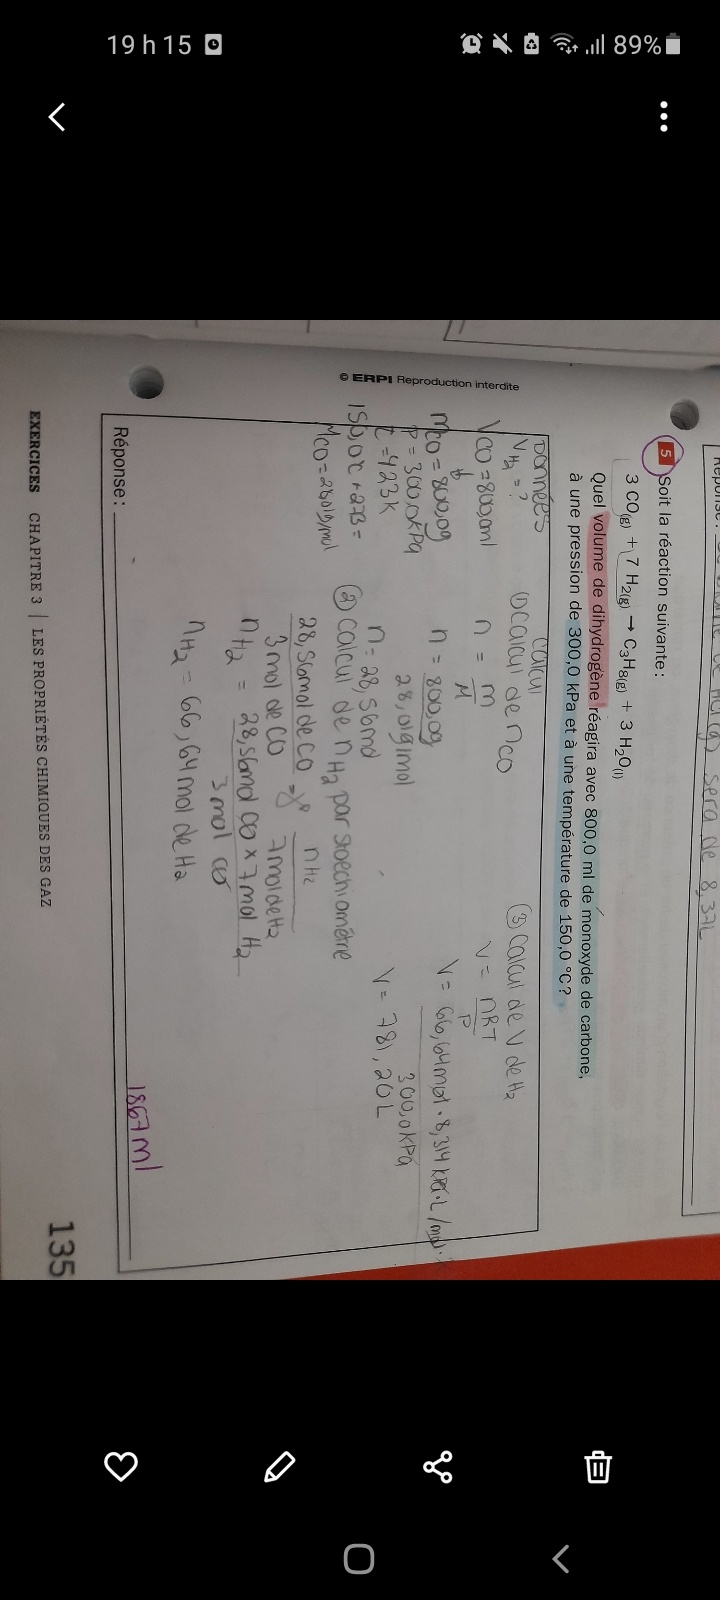 19 h 15
89%
5 Soit la réaction suivante :
3 CO(g) + 7 H2(g) → C3H8(g) + 3 H2O(l)
Quel volume de dihydrogène réagira avec 800,0 ml de monoxyde de carbone,
à une pression de 300,0 kPa et à une température de 150,0 °C ?
© ERPI Reproduction interdite
sera de 8,37L
Données
VH2 = ?
VCO = 800,0ml
mCO = 800,0g
P = 300,0kPa
t = 423k
150,0c + 273 =
MCO = 28,01g/mol
calcul
① Calcul de nCO
n = m
M
n = 800,0g
28,01g/mol
n = 28,56mol
② Calcul de nH2 par stoechiométrie
28,56mol de CO = nH2
3 mol de CO 7mol de H2
nH2 = 28,56mol CO × 7mol H2
3 mol CO
nH2 = 66,64 mol de H2
③ Calcul de V de H2
V = nRT
P
V = 66,64mol · 8,314 kPa·L/mol·
300,0kPa
V = 781,20L
Réponse :
1867ml
EXERCICES CHAPITRE 3 | LES PROPRIÉTÉS CHIMIQUES DES GAZ
135